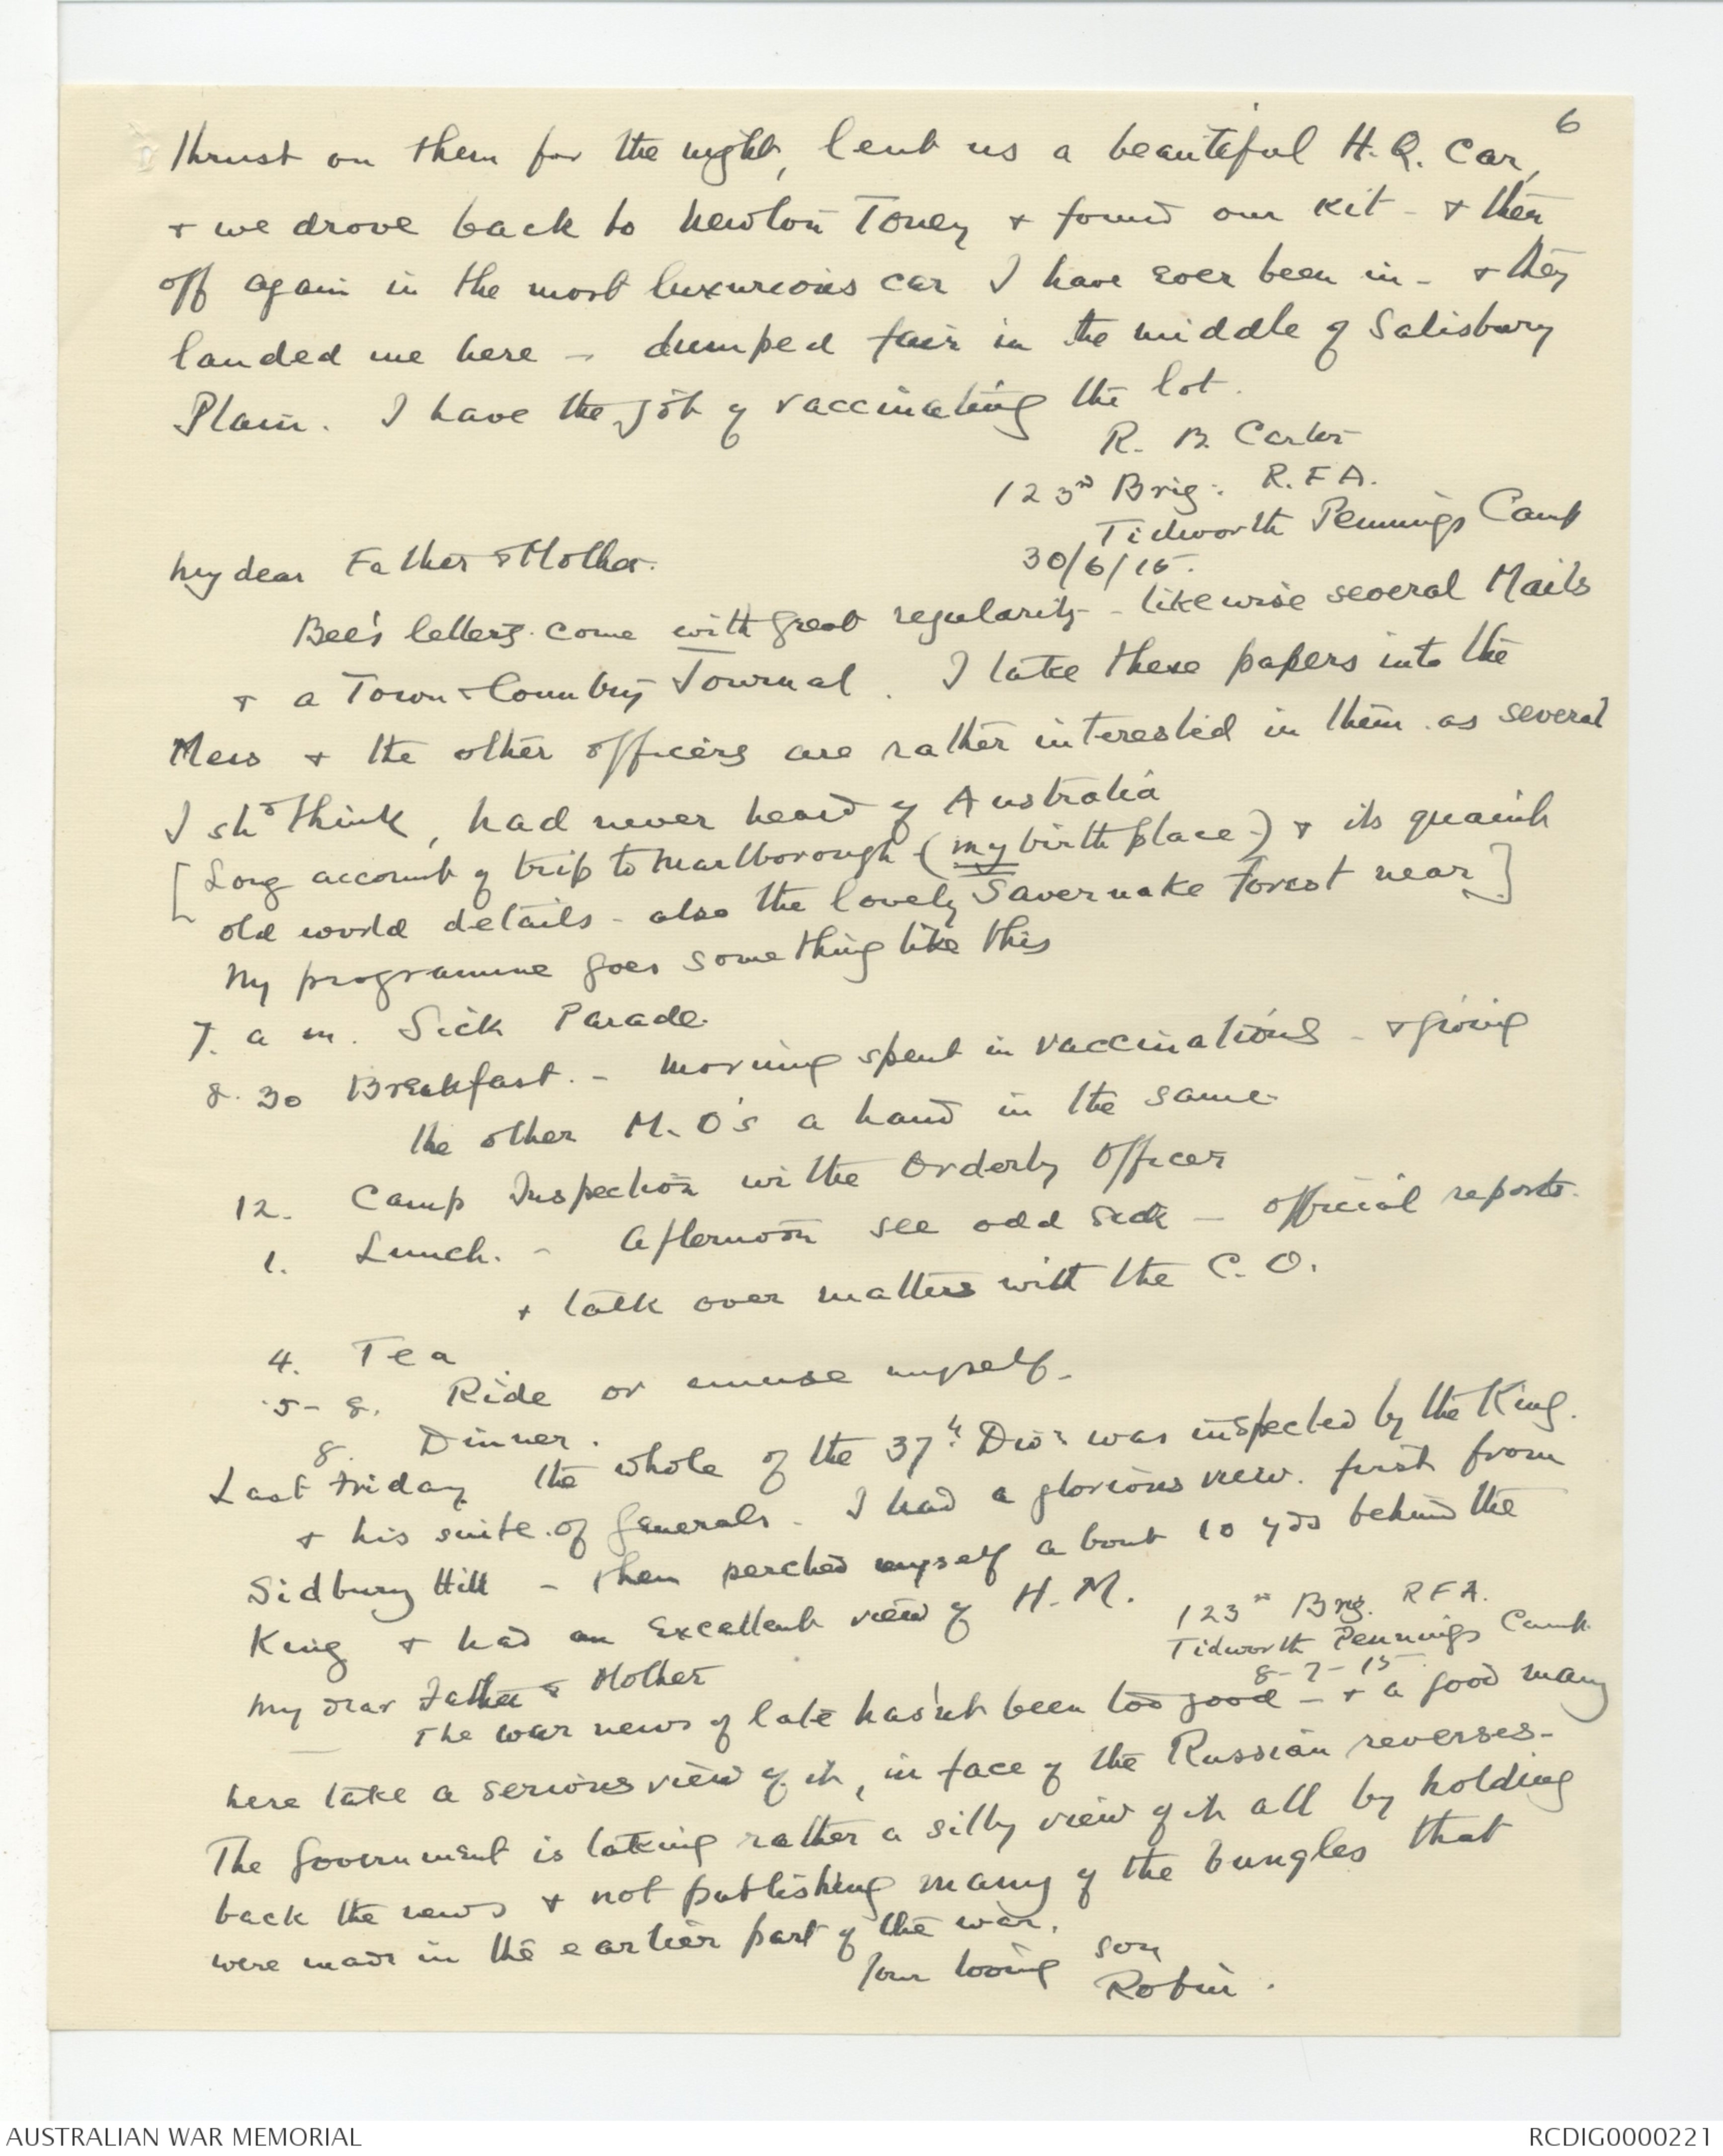 6
thrust on them for the night, lent us a beautiful H.Q. Car,
+ we drove back to Newton Toney + found our kit - + then
off again in the most luxurious car I have ever been in - + they
landed me here - dumped fair in the middle of Salisbury
Plain. I have the job of vaccinating the lot.
R. B. Carter
123rd Brig: R.F.A.
Tidworth Pennings Camp
30/6/15.
My dear Father & Mother.
Bee's letters come with great regularity - likewise several Mails
+ a Town & Country Journal. I take these papers into the
Mess + the other officers are rather interested in them as several
I shd think, had never heard of Australia
[Long account of trip to Marlborough (my birth place) + its quaint
old world details - also the lovely Savernake Forest near]
My programme goes something like this
7. a m. Sick Parade.
8.30 Breakfast. - Morning spent in vaccinations - + giving
the other M.O's a hand in the same.
12. Camp Inspection with the Orderly Officer
1. Lunch. - Afternoon see odd sick - official reports.
+ talk over matters with the C.O.
4. Tea
5-8. Ride or amuse myself.
8. Dinner.
Last Friday the whole of the 37th Divn was inspected by the King.
+ his suite of Generals. I had a glorious view. first from
Sidbury Hill - then perched myself about 10 yds behind the
King + had an excellent view of H.M.
123rd Brig. RFA.
Tidworth Pennings Camp.
8-7-15
My dear Father & Mother
The war news of late hasn't been too good - + a good many
here take a serious view of it, in face of the Russian reverses.
The Government is taking rather a silly view of it all by holding
back the news + not publishing many of the bungles that
were made in the earlier part of the war.
Your loving son
Robin.
AUSTRALIAN WAR MEMORIAL
RCDIG0000221